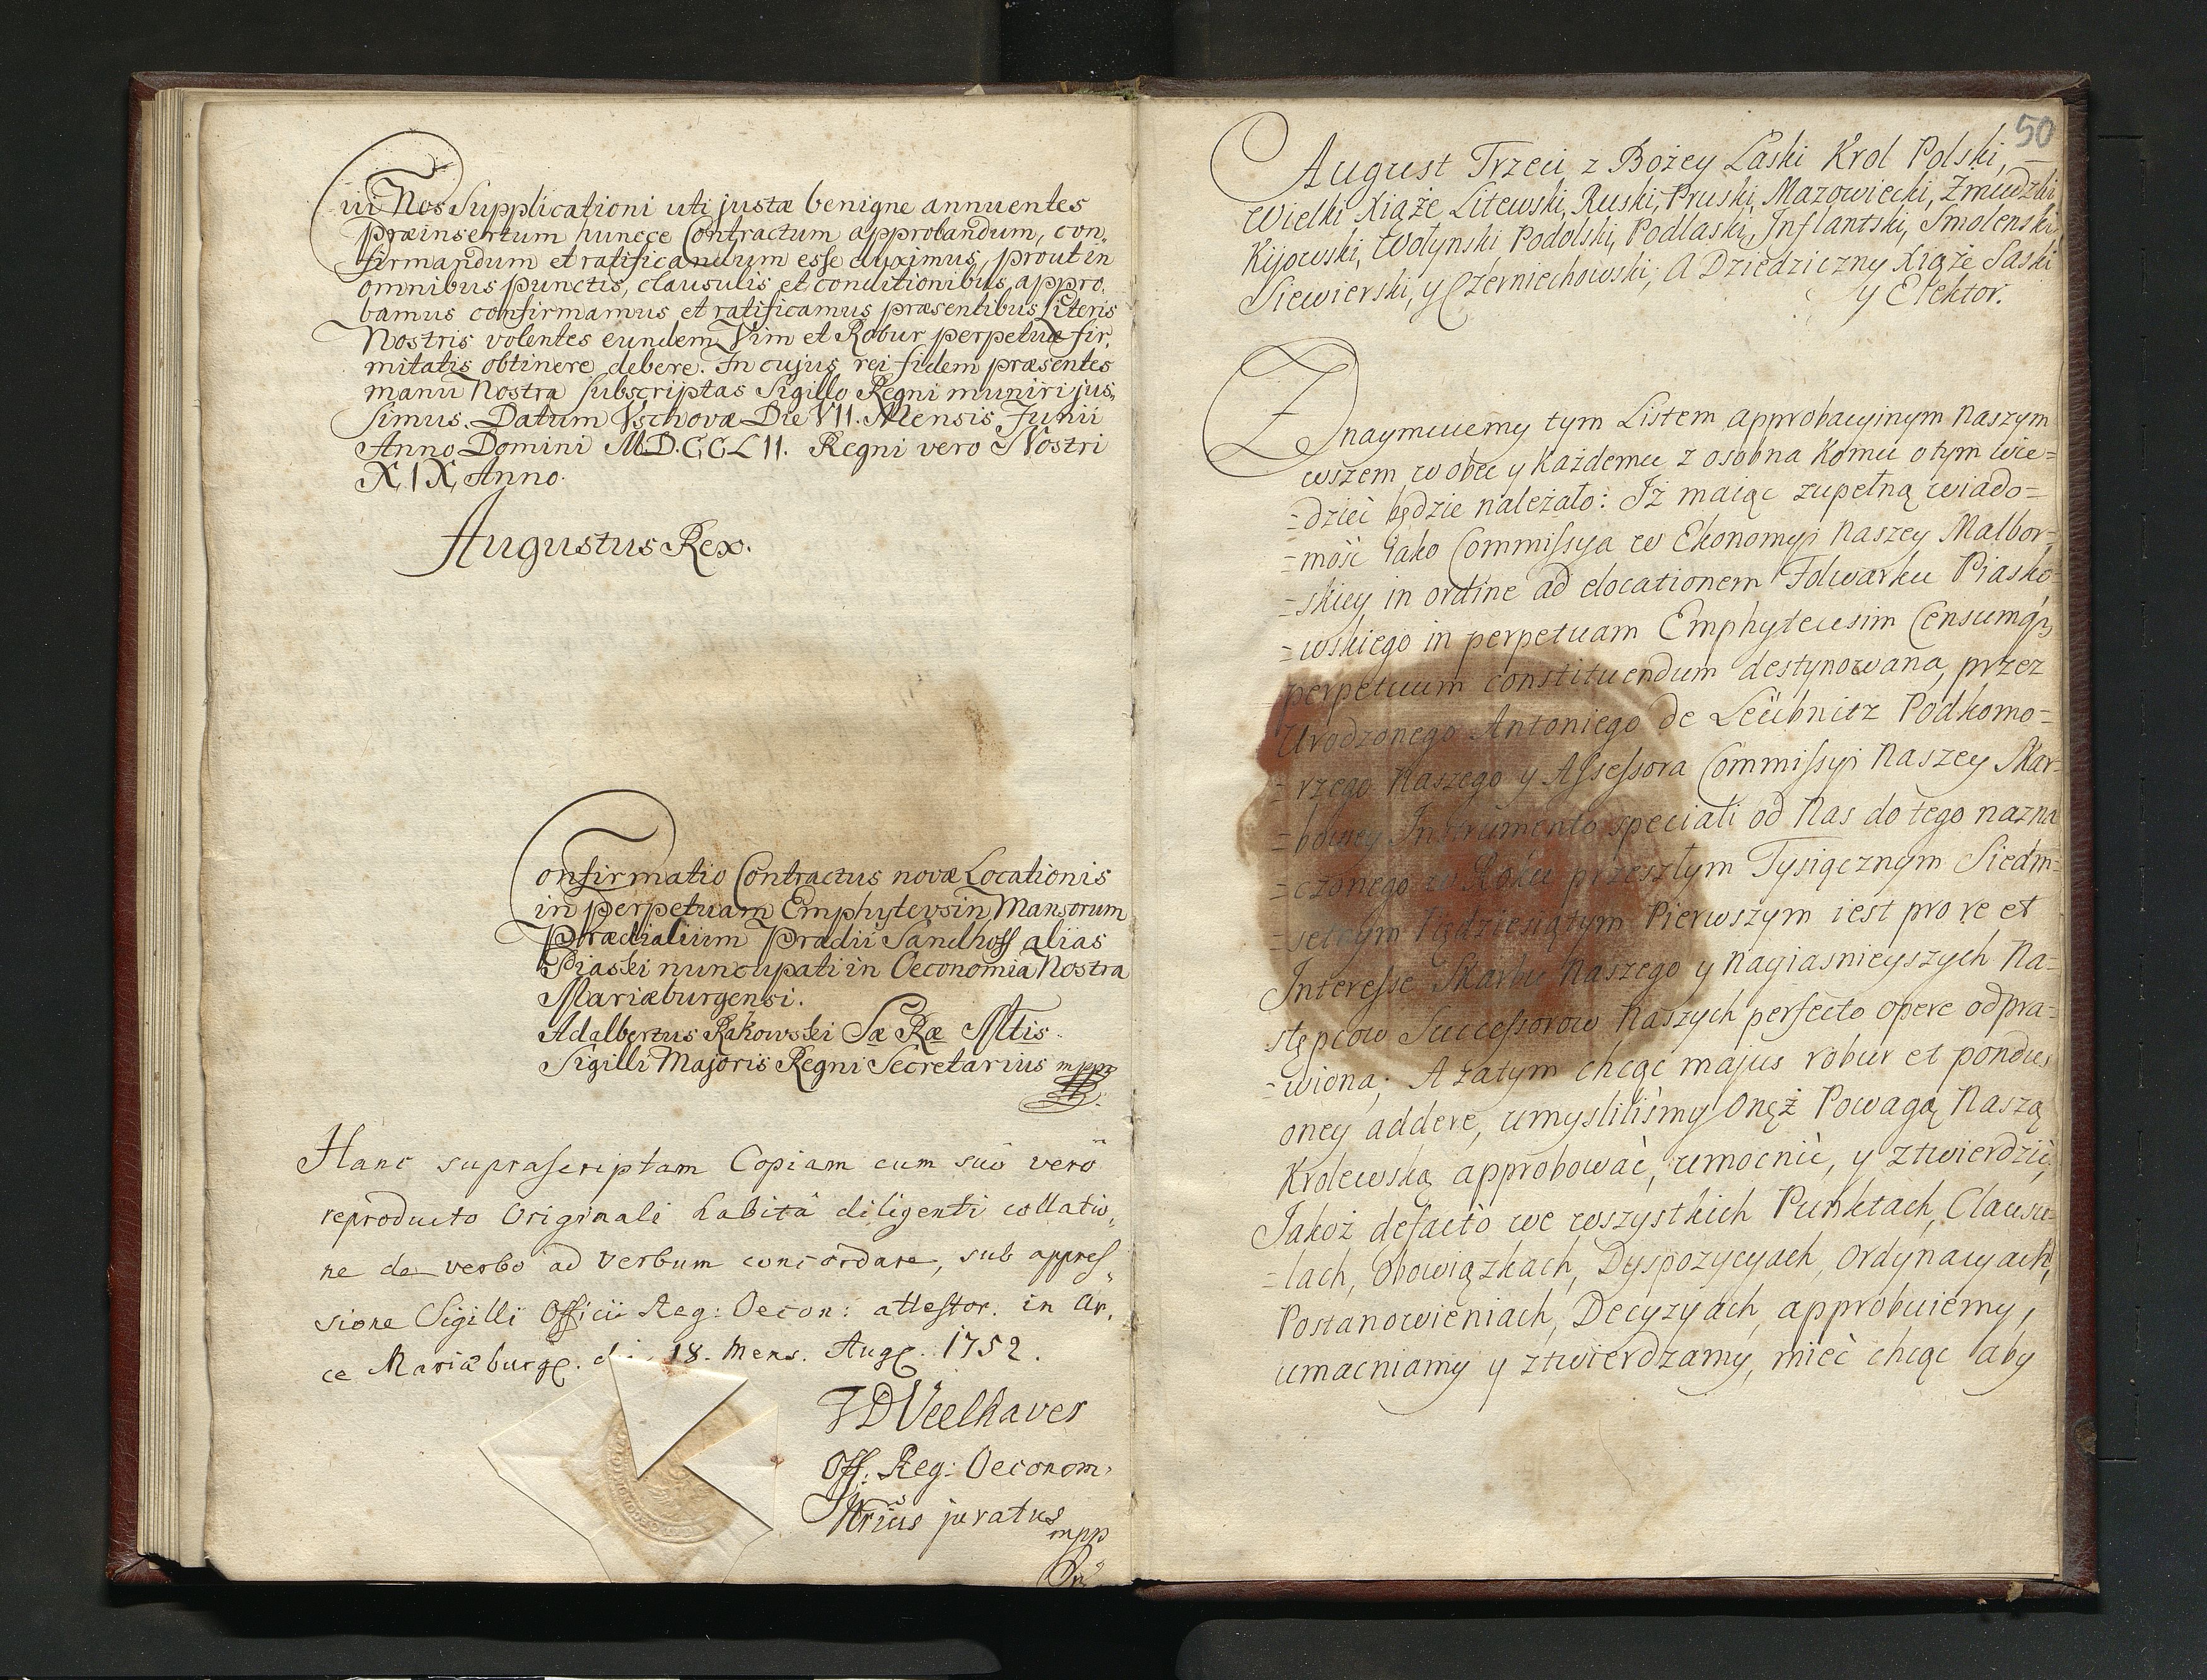 Cui Nos Supplicationi uti justæ benigne annuentes
præinsertum huncce Contractum approbandum, con,
firmandum et ratificandum esse duximus, prout in
omnibus punctis, clausulis et conditionibus, appro,
bamus confirmamus et ratificamus præsentibus Literis
Nostris volentes eundem Vim et Robur perpetuæ fir,
mitatis obtinere debere. In cujus rei fidem præsentes
manu Nostra subscriptas Sigillo Regni muniri jus,
simus. Datum Vschovæ Die VII. Mensis Junii
Anno Domini M.D.CCLII. Regni vero Nostri
XIX, Anno.
Augustus Rex.
Confirmatio Contractus novæ Locationis
in perpetuam Emphytevsin Mansorum
Prædialium Prædii Sandhoff alias
Piaski nuncupati in Oeconomia Nostra
Mariæburgensi.
Adalbertus Rakowski Sæ Ræ Mtis
Sigilli Majoris Regni Secretarius mppr
Hanc suprascriptam Copiam cum suô verô
reproducto Originali habitâ diligenti collatio,
ne de verbo ad verbum concordare, sub appres,
sione Sigilli Officii Reg: Oecon: attestor. in Ar,
ce Mariæburg. 18. Mens. Aug. 1752.
JDVeelhaver
Off. Reg: Oeconom,
juratus
mpp
50
August Trzeci z Bożey Łaski Krol Polski,
Wielki Xiąże Litewski, Ruski, Pruski, Mazowiecki, Zmudzki
Kijowski, Wołynski Podolski, Podlaski, Inflantski, Smolenski
Siewierski, y Czerniechowski; A Dziedziczny Xiąże Saski
y Elektor.
Znaymuiemy tym Listem approbacyinym Naszym
wszem w obec y każdemu z osobna komu o tym wie=
=dzieć będzie należało: Iż maiąc zupełną wiado=
=mość iako Commissya w Ekonomyi Naszey Malbor=
=skiey in ordine ad elocationem Folwarku Piasko=
=wskiego in perpetuam Emphyteusim Censumq3
perpetuum constituendum destynowana, przez
Urodzonego Antoniego de Leübnitz Podkomo=
=rzego Naszego y Assessora Commissyi Naszey Skar=
=bowey Instrumento speciali od Nas do tego nazna
=czonego w Roku przeszłym Tysiącznym Siedm=
=setnym Pędziesiątym Pierwszym iest pro re et
Interesse Skarbu Naszego y Nayiasnieyszych Na=
stępcow Successorow Naszych perfecto opere odpra=
=wiona; A zatym chcąc majus robur et pondus
oney addere, umyslilismy Onęż Powagą Naszą
Krolewską approbować, umocnić, y ztwierdzić,
Jakoż defacto we wszystkich Punktach, Clausu=
=lach, Obowiązkach, Dyspozycyach, Ordynacyach,
Postanowieniach, Decyzyach, approbuiemy,
umacniamy y ztwierdzamy, mieć chcąc aby